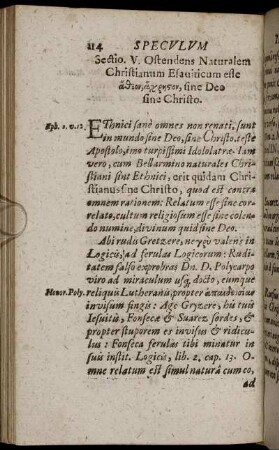 114 SPECVLVM
Sectio. V. Ostendens Naturalem
Christianum Esauiticum esse
ἄθεον, ἄχρηστον, sine Deo
sine Christo.
Eph. 2. v. 12. EThnici sanè omnes non renati, sunt
in mundo sine Deo, sine Christo. teste
Apostolo, imo turpissimi Idololatræ. Iam
vero, cum Bellarmino naturales Chri-
stiani sint Ethnici, erit quidam Chri-
stianus sine Christo, quod est contra
omnem rationem: Relatum esse sine cor-
relato, cultum religiosum esse sine colen-
do numine, divinum quid sine Deo.
Abi rudis Gretzere, valens in
Logicis, ad ferulas Logicorum: Rudi-
tatem falso exprobras Dn. D. Polycarpo
viro ad miraculum usq; docto, eumque
Honor. Poly. reliquis Lutheranis, propter
invisum fingis: Age Gryzere, hi tui
Iesuitæ, Fonsecæ & Suarez sordes, &
propter stuporem es invisus & ridicu-
lus: Fonseca ferulas tibi minatur in
suis instit. Logicis, lib. 2. cap. 13. O-
mne relatum est simul naturâ cum eo,
ad